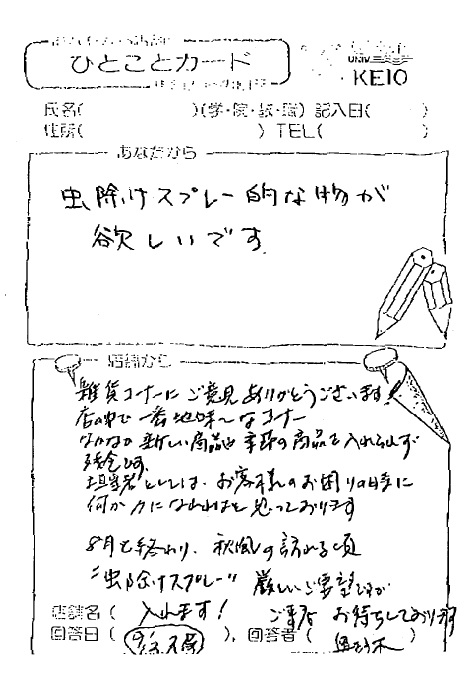 ひとことカード
UNIV.
KEIO
氏名(　　　)(学・院・教・職) 記入日(　　)
住所(　　　) TEL(　　　)
あなたから
虫除けスプレー的な物が
欲しいです
店舗から
雑貨コーナーにご意見ありがとうございます!
店の中で一番地味〜なコーナー
なかなか新しい商品や季節の商品を入れられず
残念です。
担当者としては、お客様のお困りの時に
何か力になれればと思っております
8月も終わり、秋風の訪れる頃
"虫除けスプレー" 厳しいご要望ですが
店舗名( 入れます! ご来店 お待ちしております
回答日(　　), 回答者(　　)